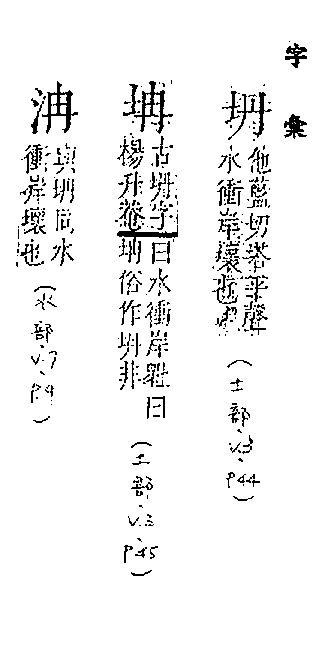 字彙
坍
他藍切塔平聲
水衝岸壞也
(土部、V.3、P.44)
坩
古坍字
楊升菴
曰水衝岸壞曰
坩俗作坍非
(土部、V.3、P.45)
泔
與坍同水
衝岸壞也
(水部、V.7、P.9)